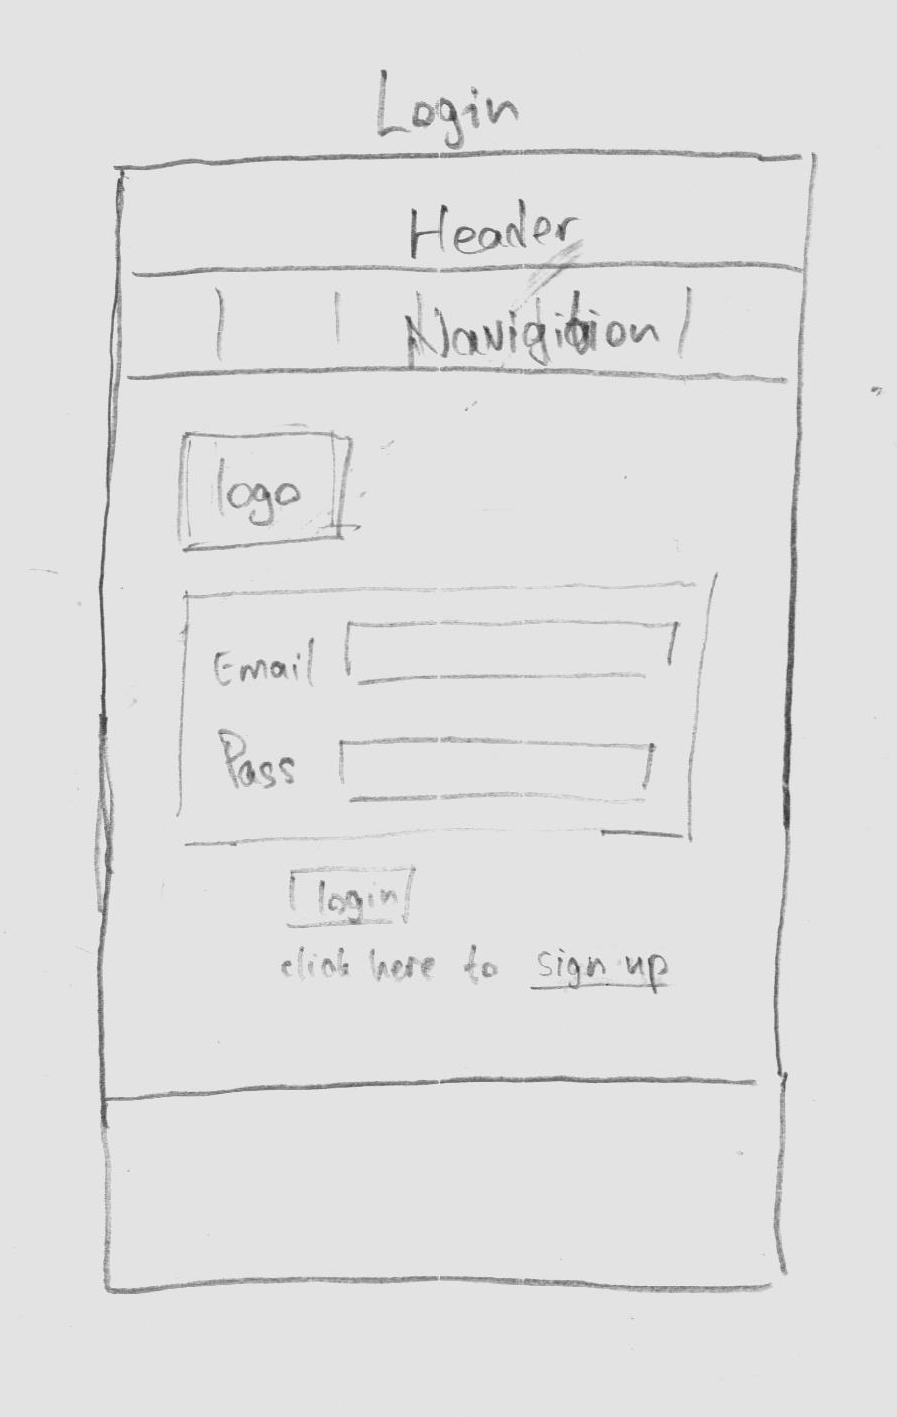 Login
Header
Navigition
logo
Email
Pass
login
click here to sign up